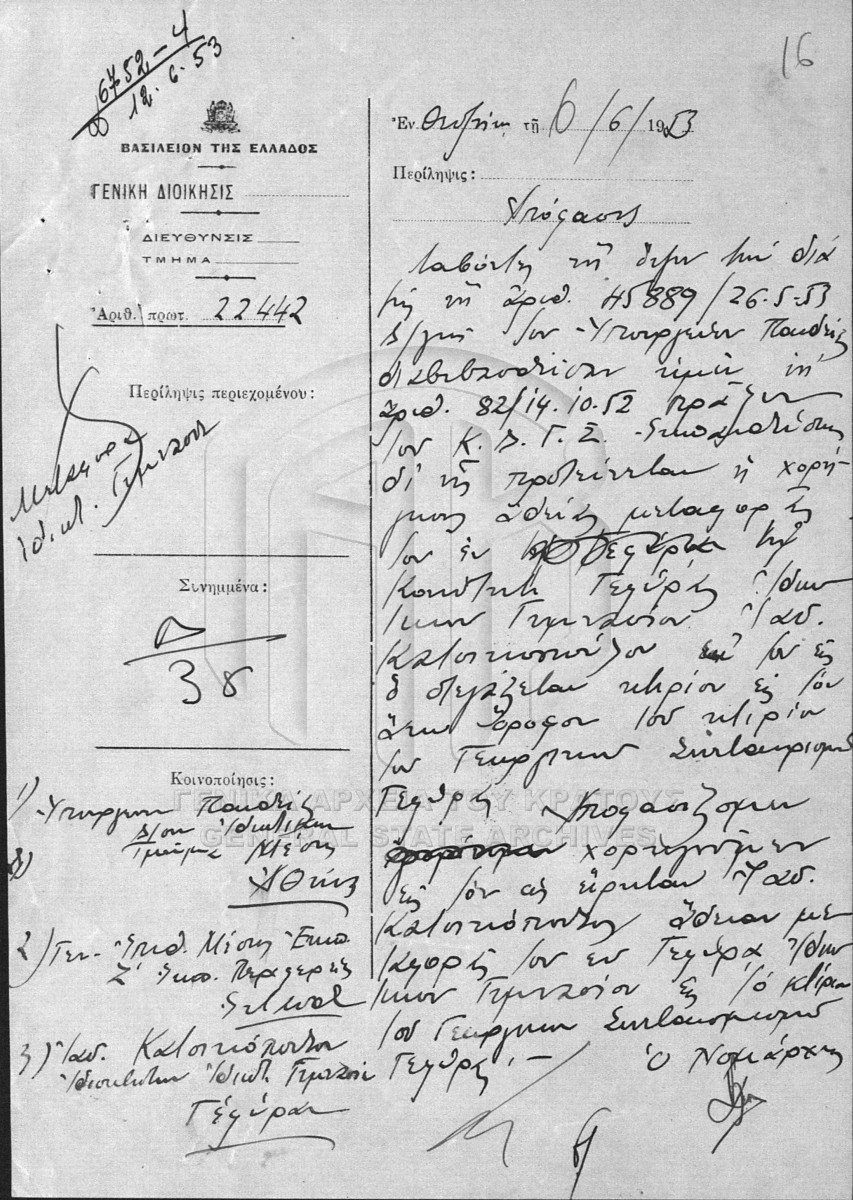 6752-4
12.6.53
16
ΒΑΣΙΛΕΙΟΝ ΤΗΣ ΕΛΛΑΔΟΣ
ΓΕΝΙΚΗ ΔΙΟΙΚΗΣΙΣ
ΔΙΕΥΘΥΝΣΙΣ
ΤΜΗΜΑ
Ἀριθ. πρωτ. 22442
Περίληψις περιεχομένου:
Μεταφορά
ἰδιωτ. Γυμνασίου
Συνημμένα:
38
Κοινοποίησις:
1) Ὑπουργεῖον Παιδείας
Δ/σιν Ἰδιωτικῆς
Τμῆμα Μέσης
Ἀθήνας
2) Γεν. Ἐπιθ. Μέσης Ἐκπ.
Ζ' Ἐκπ. Περιφερείας
3)
Ἰδιοκτήτην Ἰδιωτ. Γυμνασίου
Γέφυραν
Ἐν Θεσ/νίκῃ τῇ 6/6/1953
Περίληψις:
Ἀπόφασις
Λαβόντες ὑπ' ὄψιν τὴν διὰ
τῆς ὑπ' ἀριθ. 45889/26-5-53
Δ/γῆς τοῦ Ὑπουργείου Παιδείας
διαβιβασθεῖσαν ἡμῖν ὑπ'
ἀριθ. 82/14.10.52 πρᾶξιν
τοῦ Κ. Δ. Γ. Σ. Ἐκπαιδεύσεως
δι' ἧς προτείνεται ἡ χορή-
γησις ἀδείας μεταφορᾶς
τοῦ ἐν τῇ
Κοινότητι Γεφύρας Ἰδιω
τικοῦ Γυμνασίου
τοῦ εἰς
ὃ στεγάζεται κτιρίου εἰς τὸν
ἄνω ὄροφον τοῦ κτιρίου
τοῦ Γεωργικοῦ Συνεταιρισμοῦ
Γεφύρας Ἀποφασίζομεν
χορηγοῦμεν
εἰς τὸν ὡς εἴρηται
ἄδειαν με
ταφορᾶς τοῦ ἐν Γεφύρᾳ Ἰδιω
τικοῦ Γυμνασίου εἰς τὸ κτίριον
τοῦ Γεωργικοῦ Συνεταιρισμοῦ
Γεφύρας.-
Ὁ Νομάρχης
ΓΕΝΙΚΑ ΑΡΧΕΙΑ ΤΟΥ ΚΡΑΤΟΥΣ
GENERAL STATE ARCHIVES